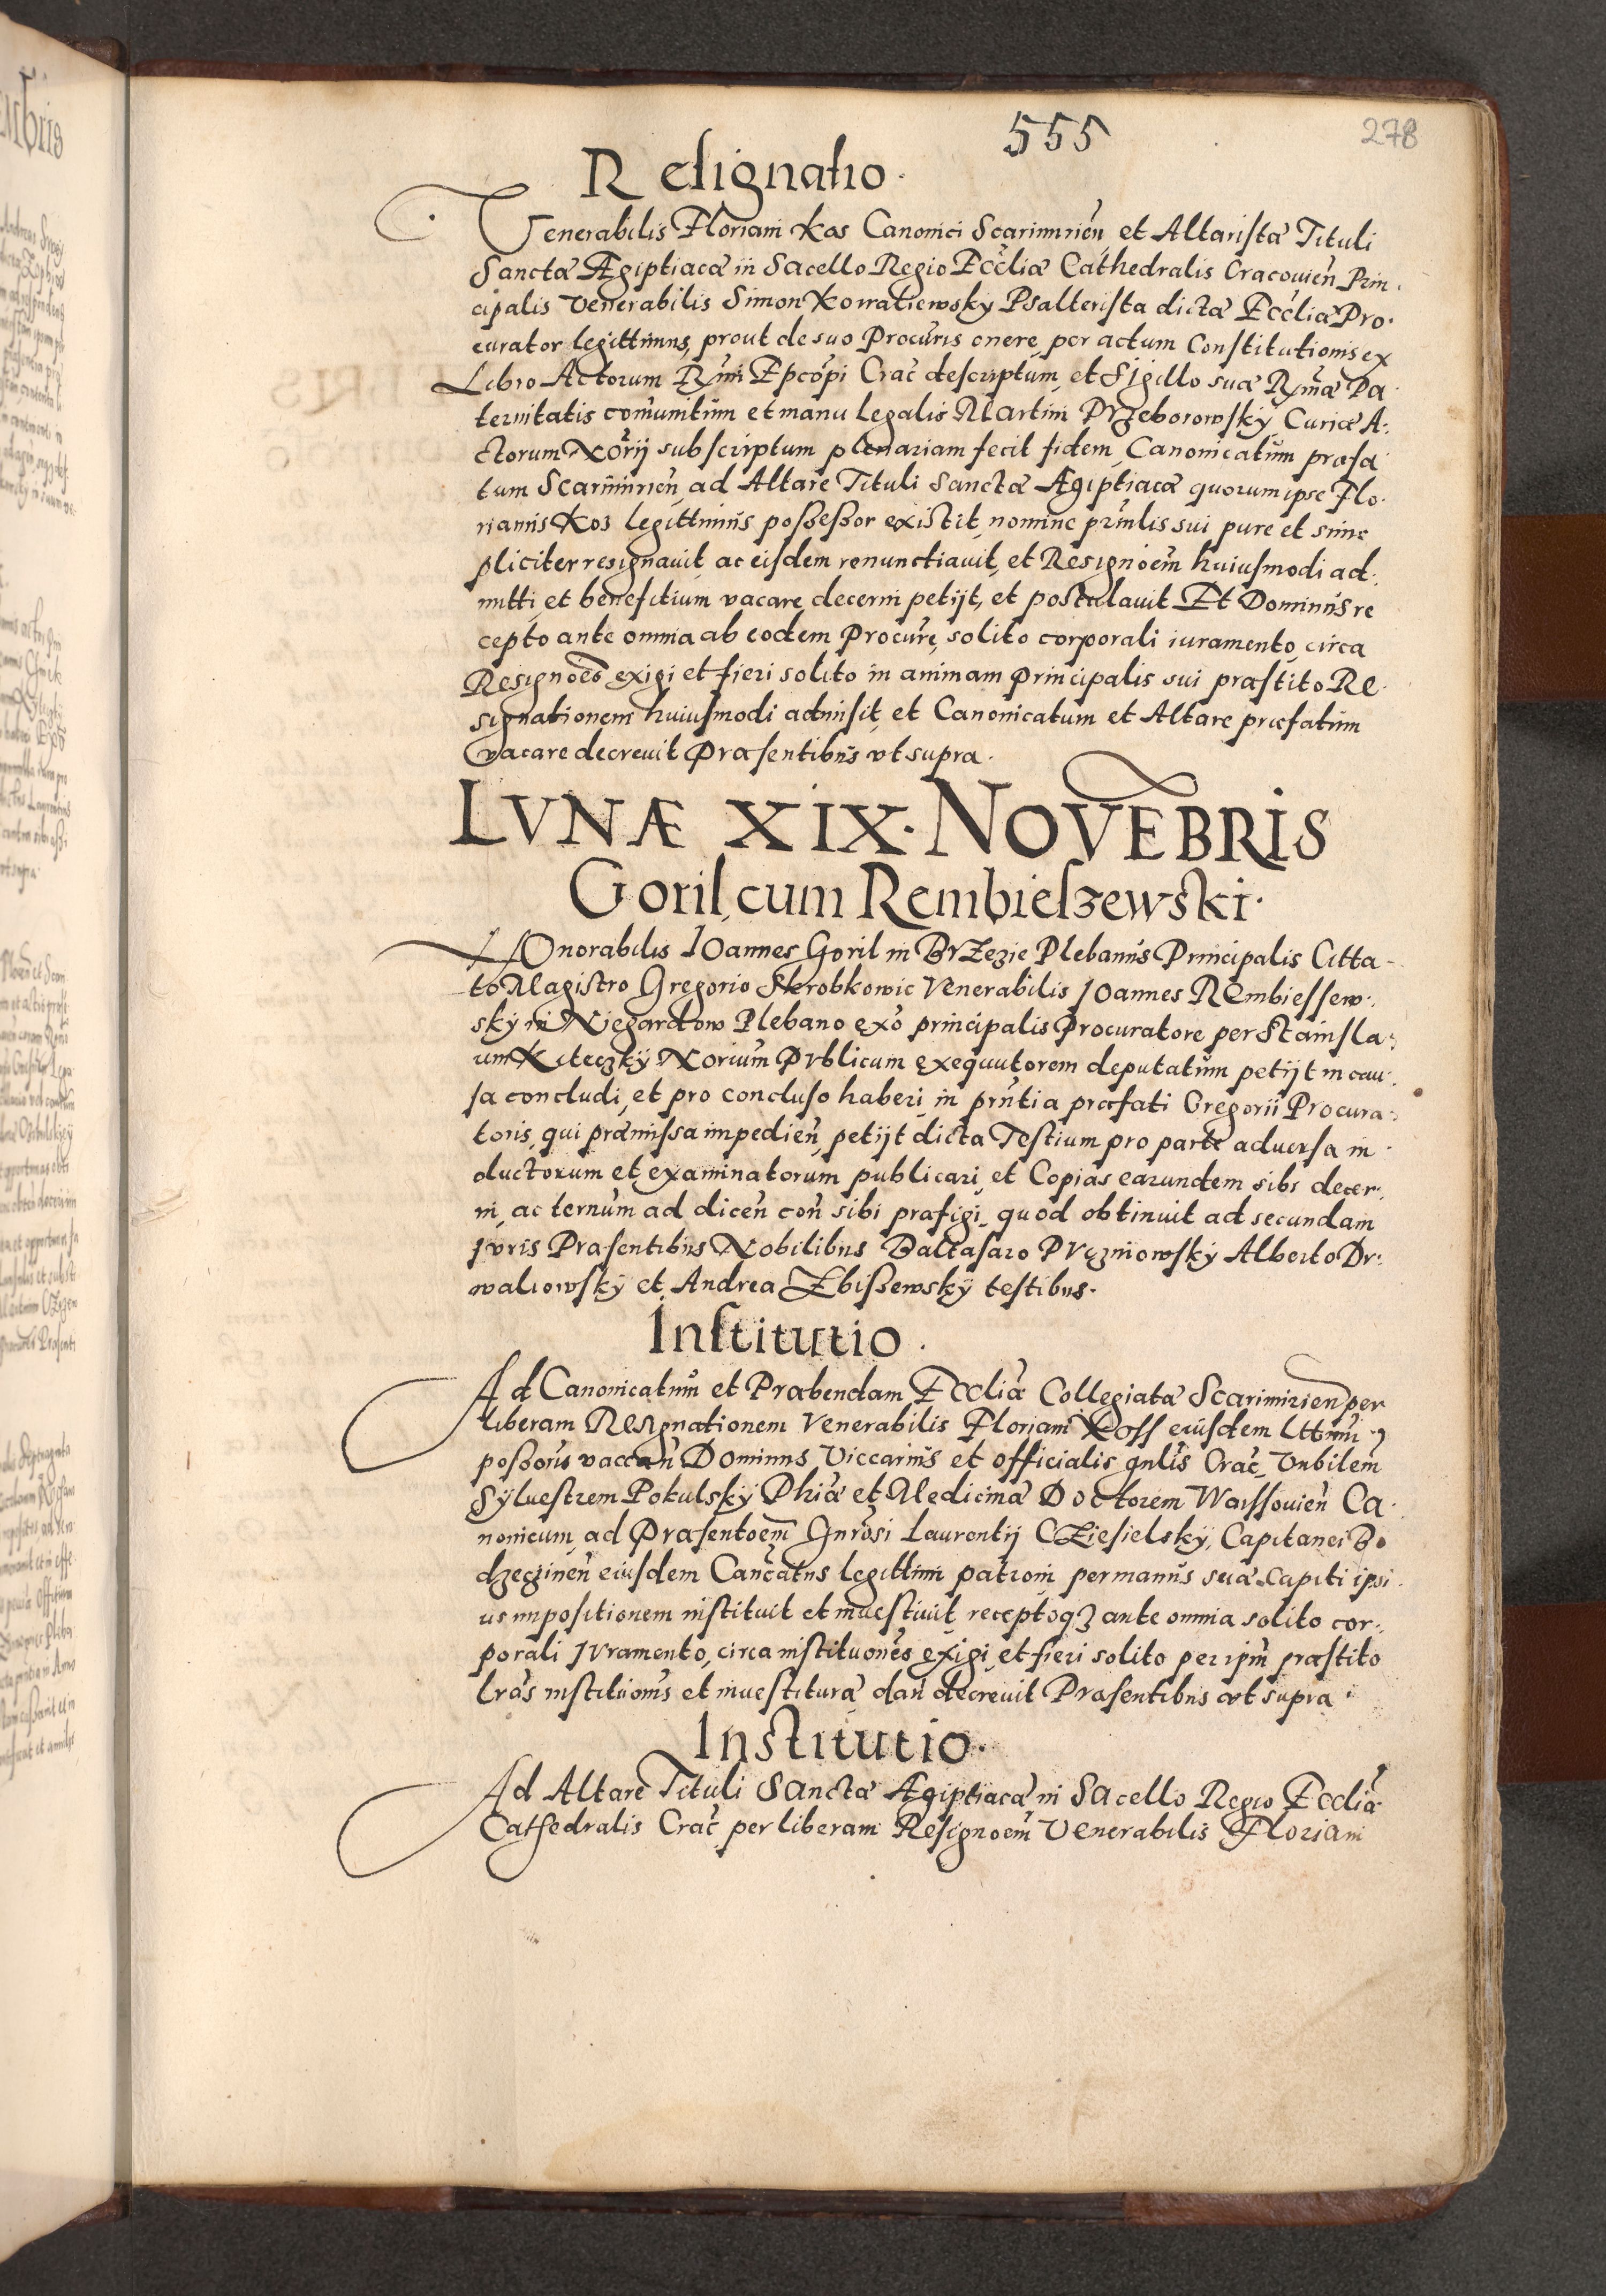 555
278
Resignatio.
Venerabilis Floriani Kos Canonici Scarimirień, et Altaristæ Tituli
Sanctæ Ægiptiacæ in Sacello Regio Eccliæ Cathedralis Cracovień Prin
cipalis Venerabilis Simon Kowaliewsky Psalterista dictæ Eccliæ Pro
curator legittimus, prout de suo Procuris onere per actum Constitutionis ex
Libro Actorum Rmi Epcopi Crac descriptum, et Sigillo suæ Rmæ Pa
ternitatis comunitum et manu legalis Martini Przeborowsky Curiæ A:
ctorum Norij subscriptum plenariam fecit fidem, Canonicatum præfa
tum Scarimirień, ad Altare Tituli Sanctæ Ægiptiacæ quorum ipse Flo
rianus Kos legittimus possessor existit, nomine prinlis sui pure et sim
pliciter resignavit, ac eisdem renunctiavit, et Resignoem huiusmodi ad
mitti, et benefitium vacare, decerni petijt, et postulavit Et Dominus re
cepto ante omnia ab eodem Procure, solito corporali iuramento, circa
Resignoes exigi et fieri solito in animam Principalis sui præstito Re
signationem huiusmodi admisit, et Canonicatum et Altare præfatum
vacare decrevit Præsentibus vt supra.
LVNÆ XIX. NOVEBRIS
Goril, cum Rembieszewski.
HOnorabilis IOannes Goril in BrZezie Plebanus Principalis Citta
to Magistro Gregorio Skrobkowic Venerabilis IOannes REmbiessew
sky in Niegardow Plebano exo principalis Procuratore per Stanisla
um Kiteczky Norium Pvblicum exequutorem deputatum petijt in cau
sa concludi, et pro concluso haberi, in prntia præfati Gregorii Procura
toris, qui præmissa impedień, petijt dicta Testium pro parte adversa in
ductorum et examinatorum publicari, et Copias earundem sibi decer
ni, ac ternum ad diceń coń sibi præfigi, quod obtinuit ad secundam
Ivris Præsentibus Nobilibus Baltasaro Pręzniowsky Alberto Dr
waliowsky et Andrea Zbissewsky testibus.
Institutio.
Ad Canonicatum et Præbendam Eccliæ Collegiatæ Scarimirień per
liberam REsignationem Venerabilis Floriani Koss eiusdem lttimi
possoris vacań Dominus Viccarius et officialis gnlis Crac, Vnbilem
Sylvestrem Pokulsky Phiæ et Medicinæ Doctorem Warssovień Ca
nonicum, ad Præsentoem Gnrosi Laurentij CZiesielsky, Capitanei Bo
dzęczineń eiusdem Cancatus legittimi patroni per manus suæ capiti ipsi
us impositionem instituit et investivit, receptoqz ante omnia solito cor
porali Ivramento, circa instituones exigi, et fieri solito per ipm præstito
lras institionis et investituræ dań decrevit Præsentibus vt supra.
Institutio.
Ad Altare Tituli SAnctæ Ægiptiacæ in SAcello Regio Eccliæ
Cathedralis Crac per liberam Resignoem Venerabilis Floriani